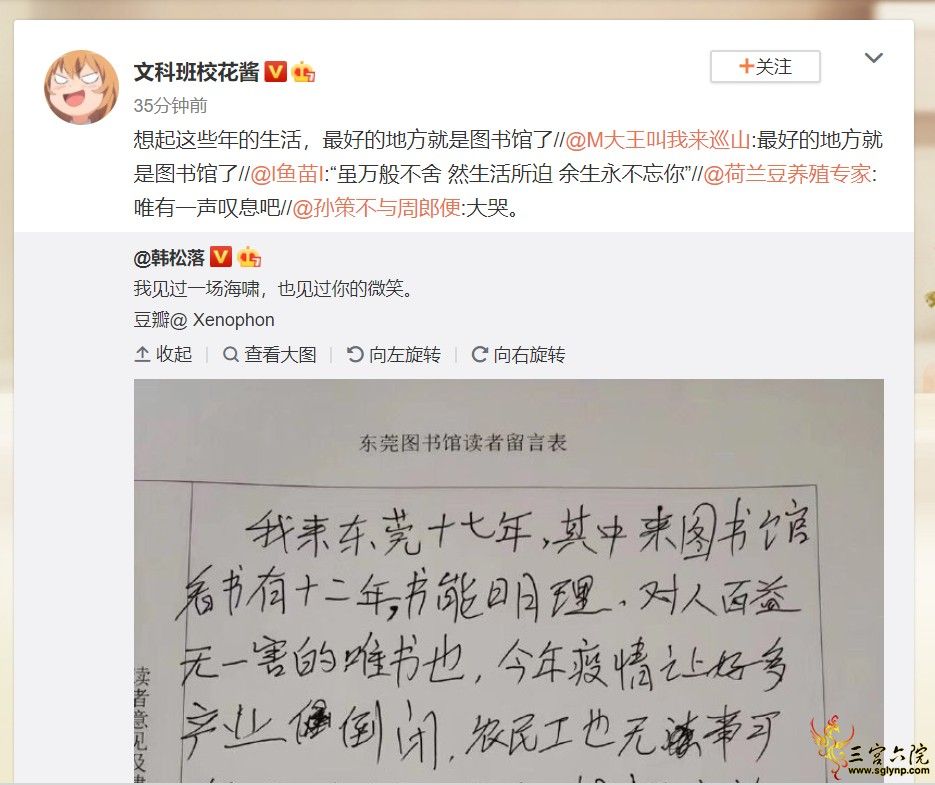 文科班校花酱
35分钟前
+关注
想起这些年的生活，最好的地方就是图书馆了//@M大王叫我来巡山:最好的地方就
是图书馆了//@l鱼苗l:“虽万般不舍 然生活所迫 余生永不忘你”//@荷兰豆养殖专家:
唯有一声叹息吧//@孙策不与周郎便:大哭。
@韩松落
我见过一场海啸，也见过你的微笑。
豆瓣@ Xenophon
收起 查看大图 向左旋转 向右旋转
东莞图书馆读者留言表
我来东莞十七年,其中来图书馆
看书有十二年,书能明理、对人百益
无一害的唯书也,今年疫情让好多
产业倒闭,农民工也无事可
读者意见及建
三宫六院
www.sglynp.com